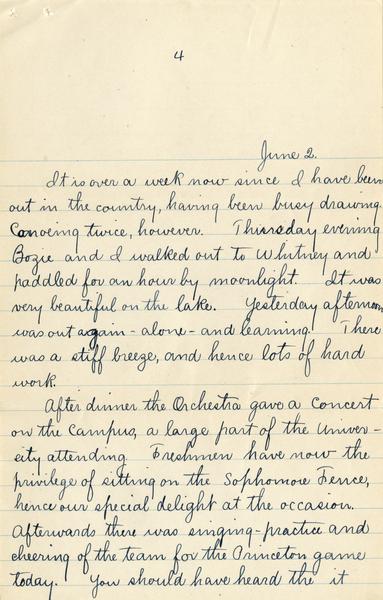 4
June 2.
It is over a week now since I have been
out in the country, having been busy drawing.
Canoeing twice, however. Thursday evening
Bozie and I walked out to Whitney and
paddled for an hour by moonlight. It was
very beautiful on the lake. Yesterday afternoon
was out again - alone - and learning. There
was a stiff breeze, and hence lots of hard
work.
After dinner the Orchestra gave a concert
on the Campus, a large part of the Univer-
sity attending. Freshmen have now the
privilege of sitting on the Sophomore Fence,
hence our special delight at the occasion.
Afterwards there was singing-practice and
cheering of the team for the Princeton game
today. You should have heard the it